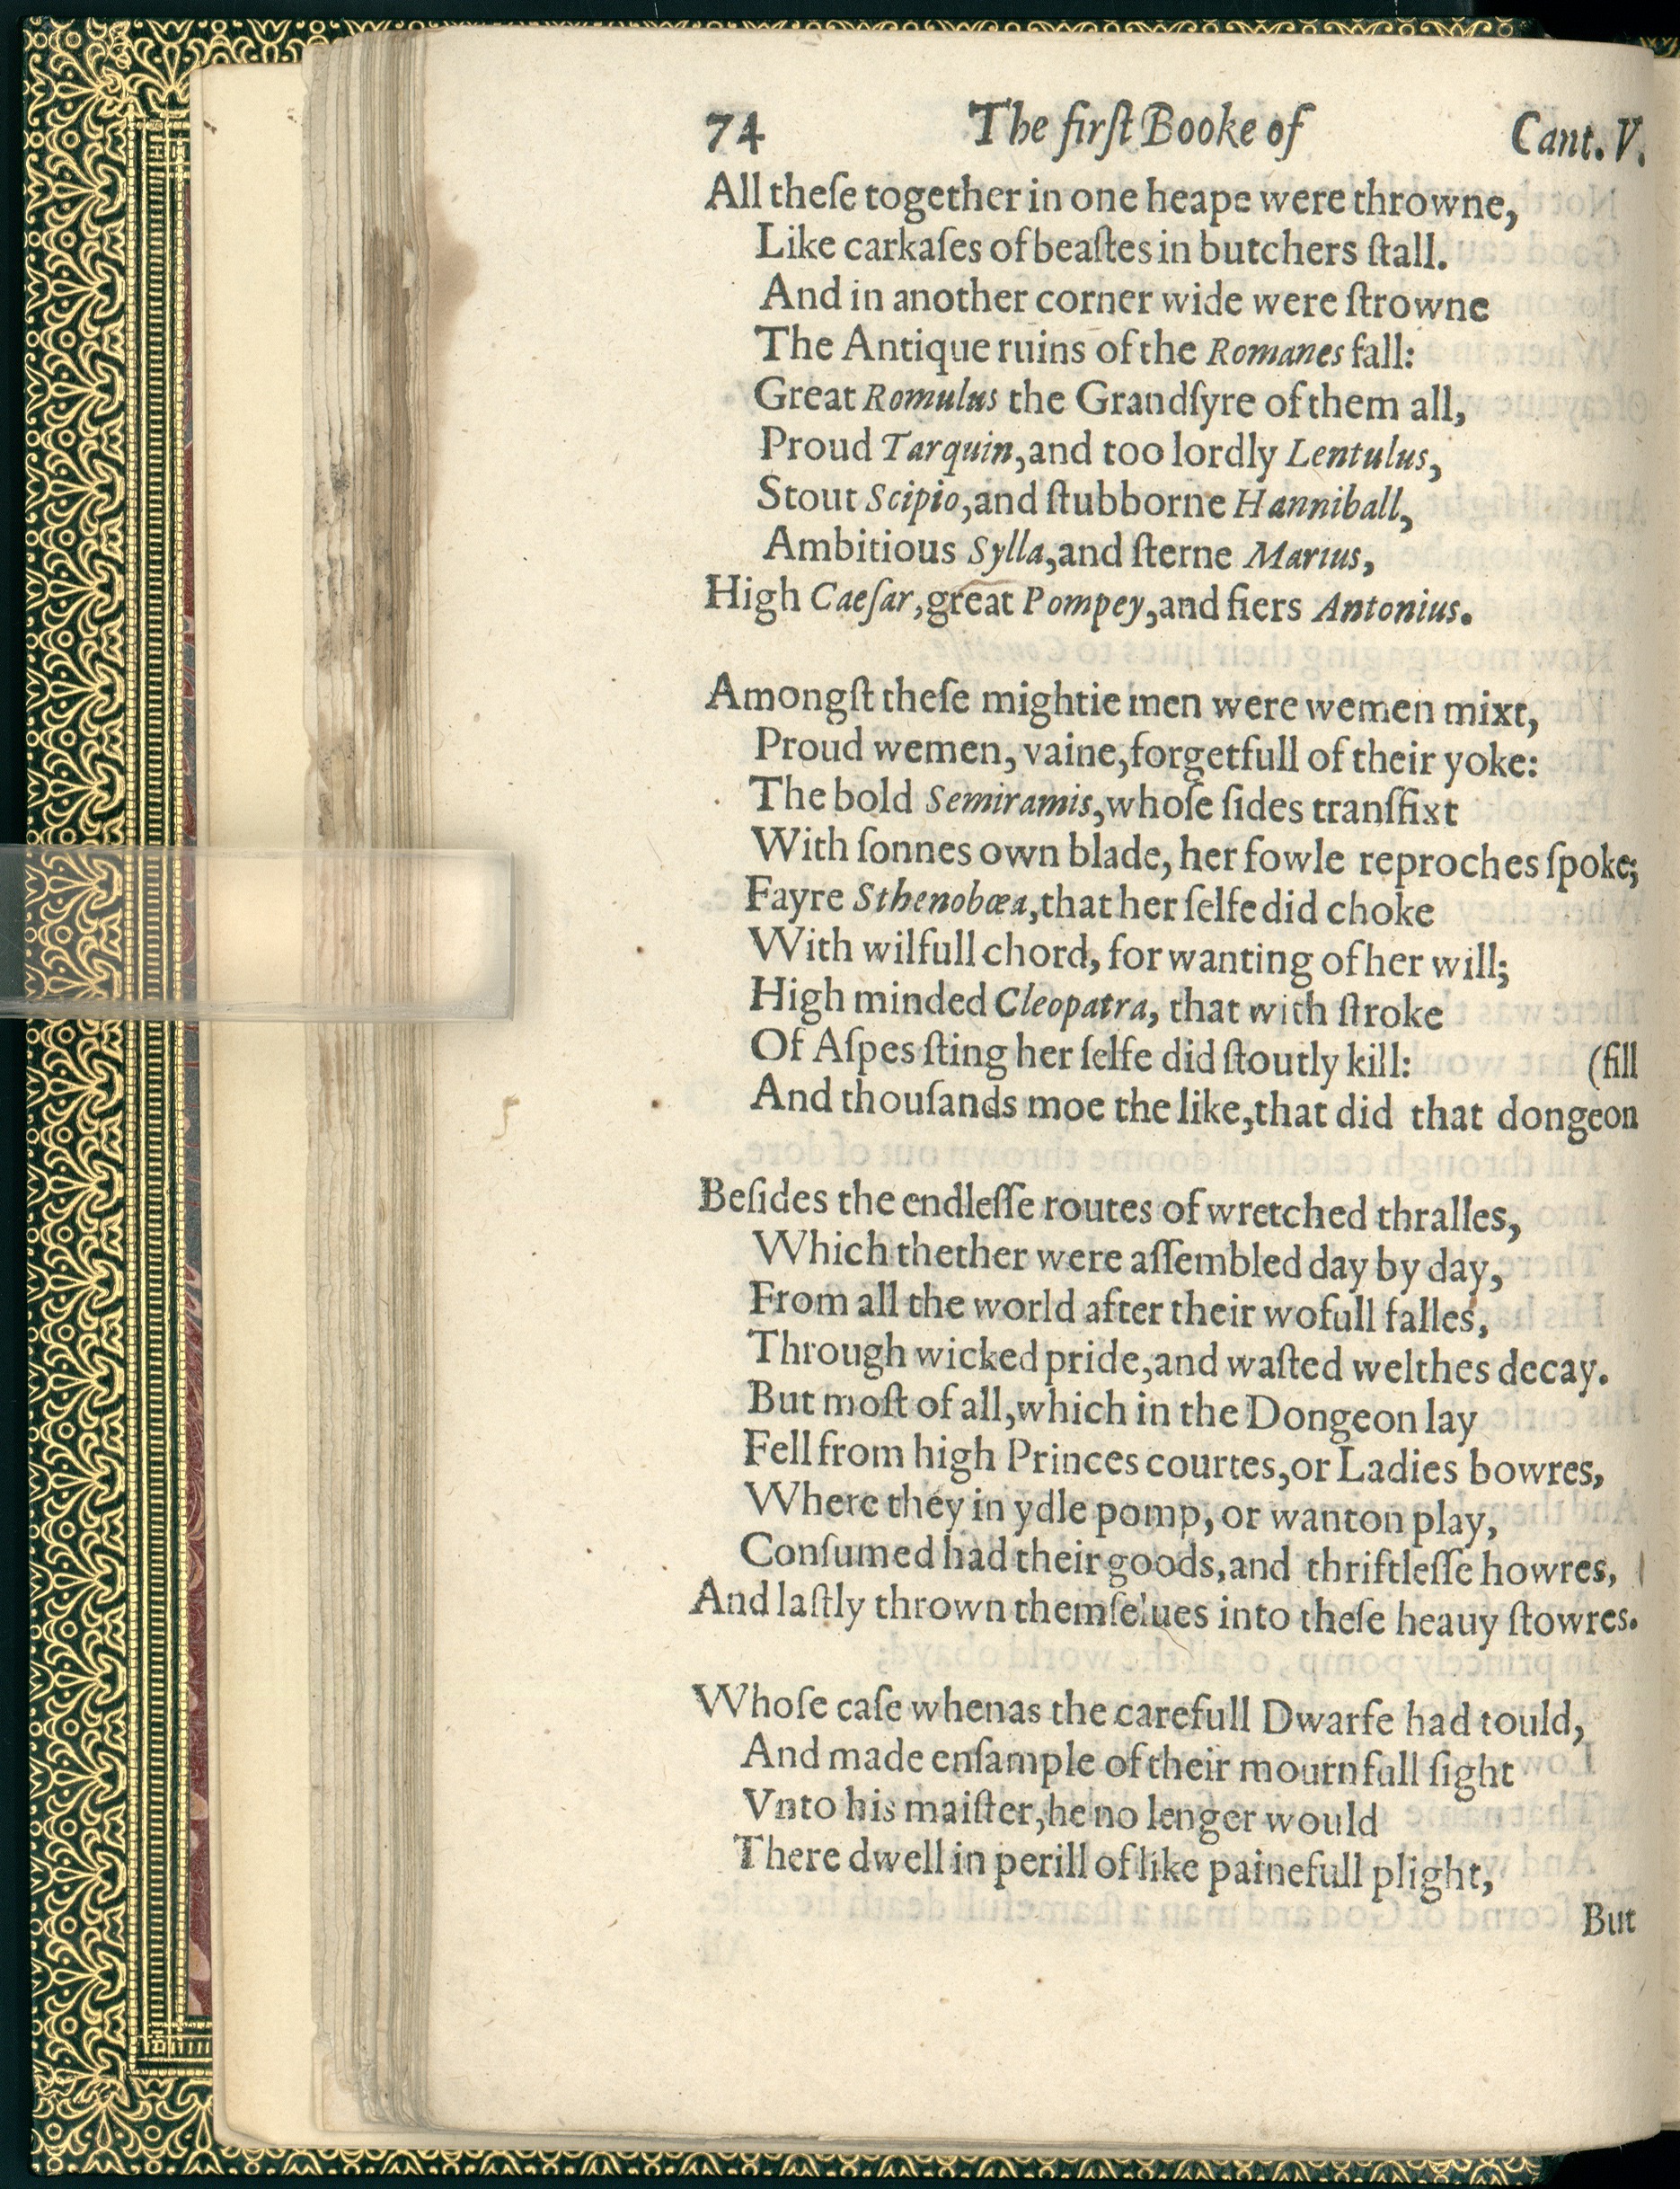 74 The firſt Booke of Cant. V.
All theſe together in one heape were throwne,
Like carkaſes of beaſtes in butchers ſtall.
And in another corner wide were ſtrowne
The Antique ruins of the Romanes fall:
Great Romulus the Grandſyre of them all,
Proud Tarquin, and too lordly Lentulus,
Stout Scipio, and ſtubborne Hanniball,
Ambitious Sylla, and ſterne Marius,
High Caeſar, great Pompey, and fiers Antonius.
Amongſt theſe mightie men were wemen mixt,
Proud wemen, vaine, forgetfull of their yoke:
The bold Semiramis, whoſe ſides tranſfixt
With ſonnes own blade, her fowle reproches ſpoke;
Fayre Sthenobœa, that her ſelfe did choke
With wilfull chord, for wanting of her will;
High minded Cleopatra, that with ſtroke
Of Aſpes ſting her ſelfe did ſtoutly kill: (fill
And thouſands moe the like, that did that dongeon
Beſides the endleſſe routes of wretched thralles,
Which thether were aſſembled day by day,
From all the world after their wofull falles,
Through wicked pride, and waſted welthes decay.
But moſt of all, which in the Dongeon lay
Fell from high Princes courtes, or Ladies bowres,
Where they in ydle pomp, or wanton play,
Conſumed had their goods, and thriftleſſe howres,
And laſtly thrown themſelues into theſe heauy ſtowres.
Whoſe caſe whenas the carefull Dwarfe had tould,
And made enſample of their mournfull ſight
Vnto his maiſter, he no lenger would
There dwell in perill of like painefull plight,
But